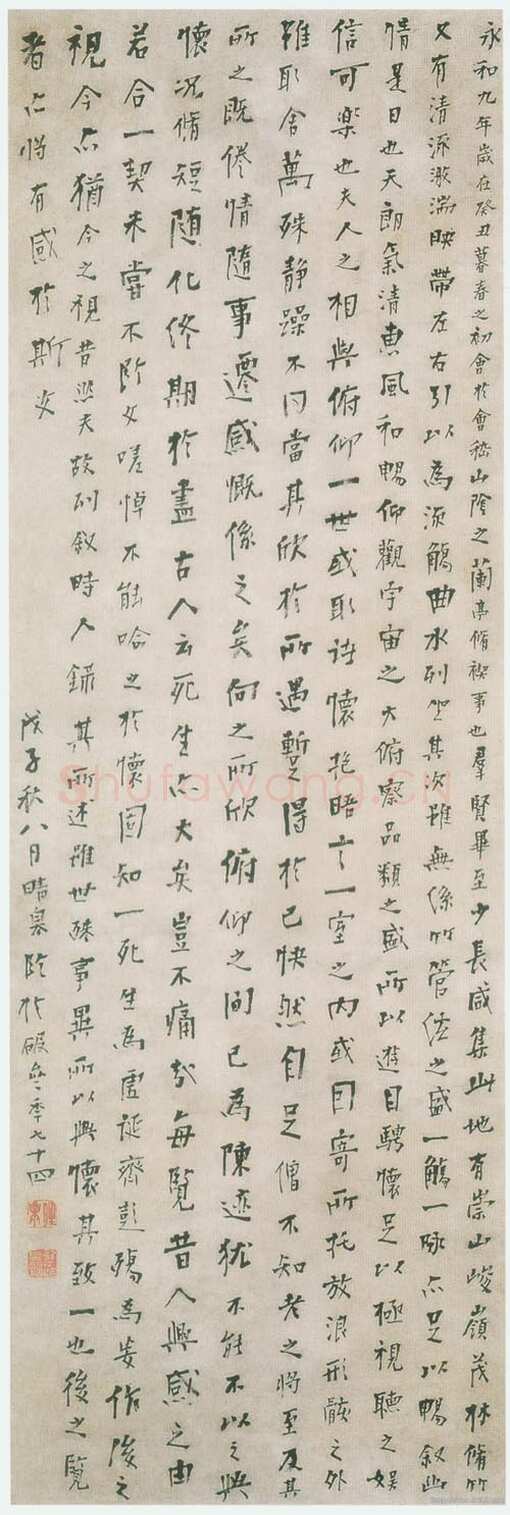 永和九年歲在癸丑暮春之初會於會嵇山陰之蘭亭脩禊事也羣賢畢至少長咸集此地有崇山峻嶺茂林脩竹
又有清流激湍映帶左右引以為流觴曲水列坐其次雖無絲竹管弦之盛一觴一詠亦足以暢敘幽
情是日也天朗氣清惠風和暢仰觀宇宙之大俯察品類之盛所以遊目騁懷足以極視聽之娛
信可樂也夫人之相與俯仰一世或取諸懷抱晤言一室之內或因寄所托放浪形骸之外
雖取舍萬殊靜躁不同當其欣於所遇暫得於己快然自足曾不知老之將至及其
所之既倦情隨事遷感慨係之矣向之所欣俯仰之間已為陳迹猶不能不以之興
懷況脩短隨化終期於盡古人云死生亦大矣豈不痛哉每覽昔人興感之由
若合一契未嘗不臨文嗟悼不能喻之於懷固知一死生為虛誕齊彭殤為妄作後之
視今亦猶今之視昔悲夫故列敘時人錄其所述雖世殊事異所以興懷其致一也後之覽
者亦將有感於斯文
戊子秋八月晴皋臨於 年七十四
Shufawang.cn